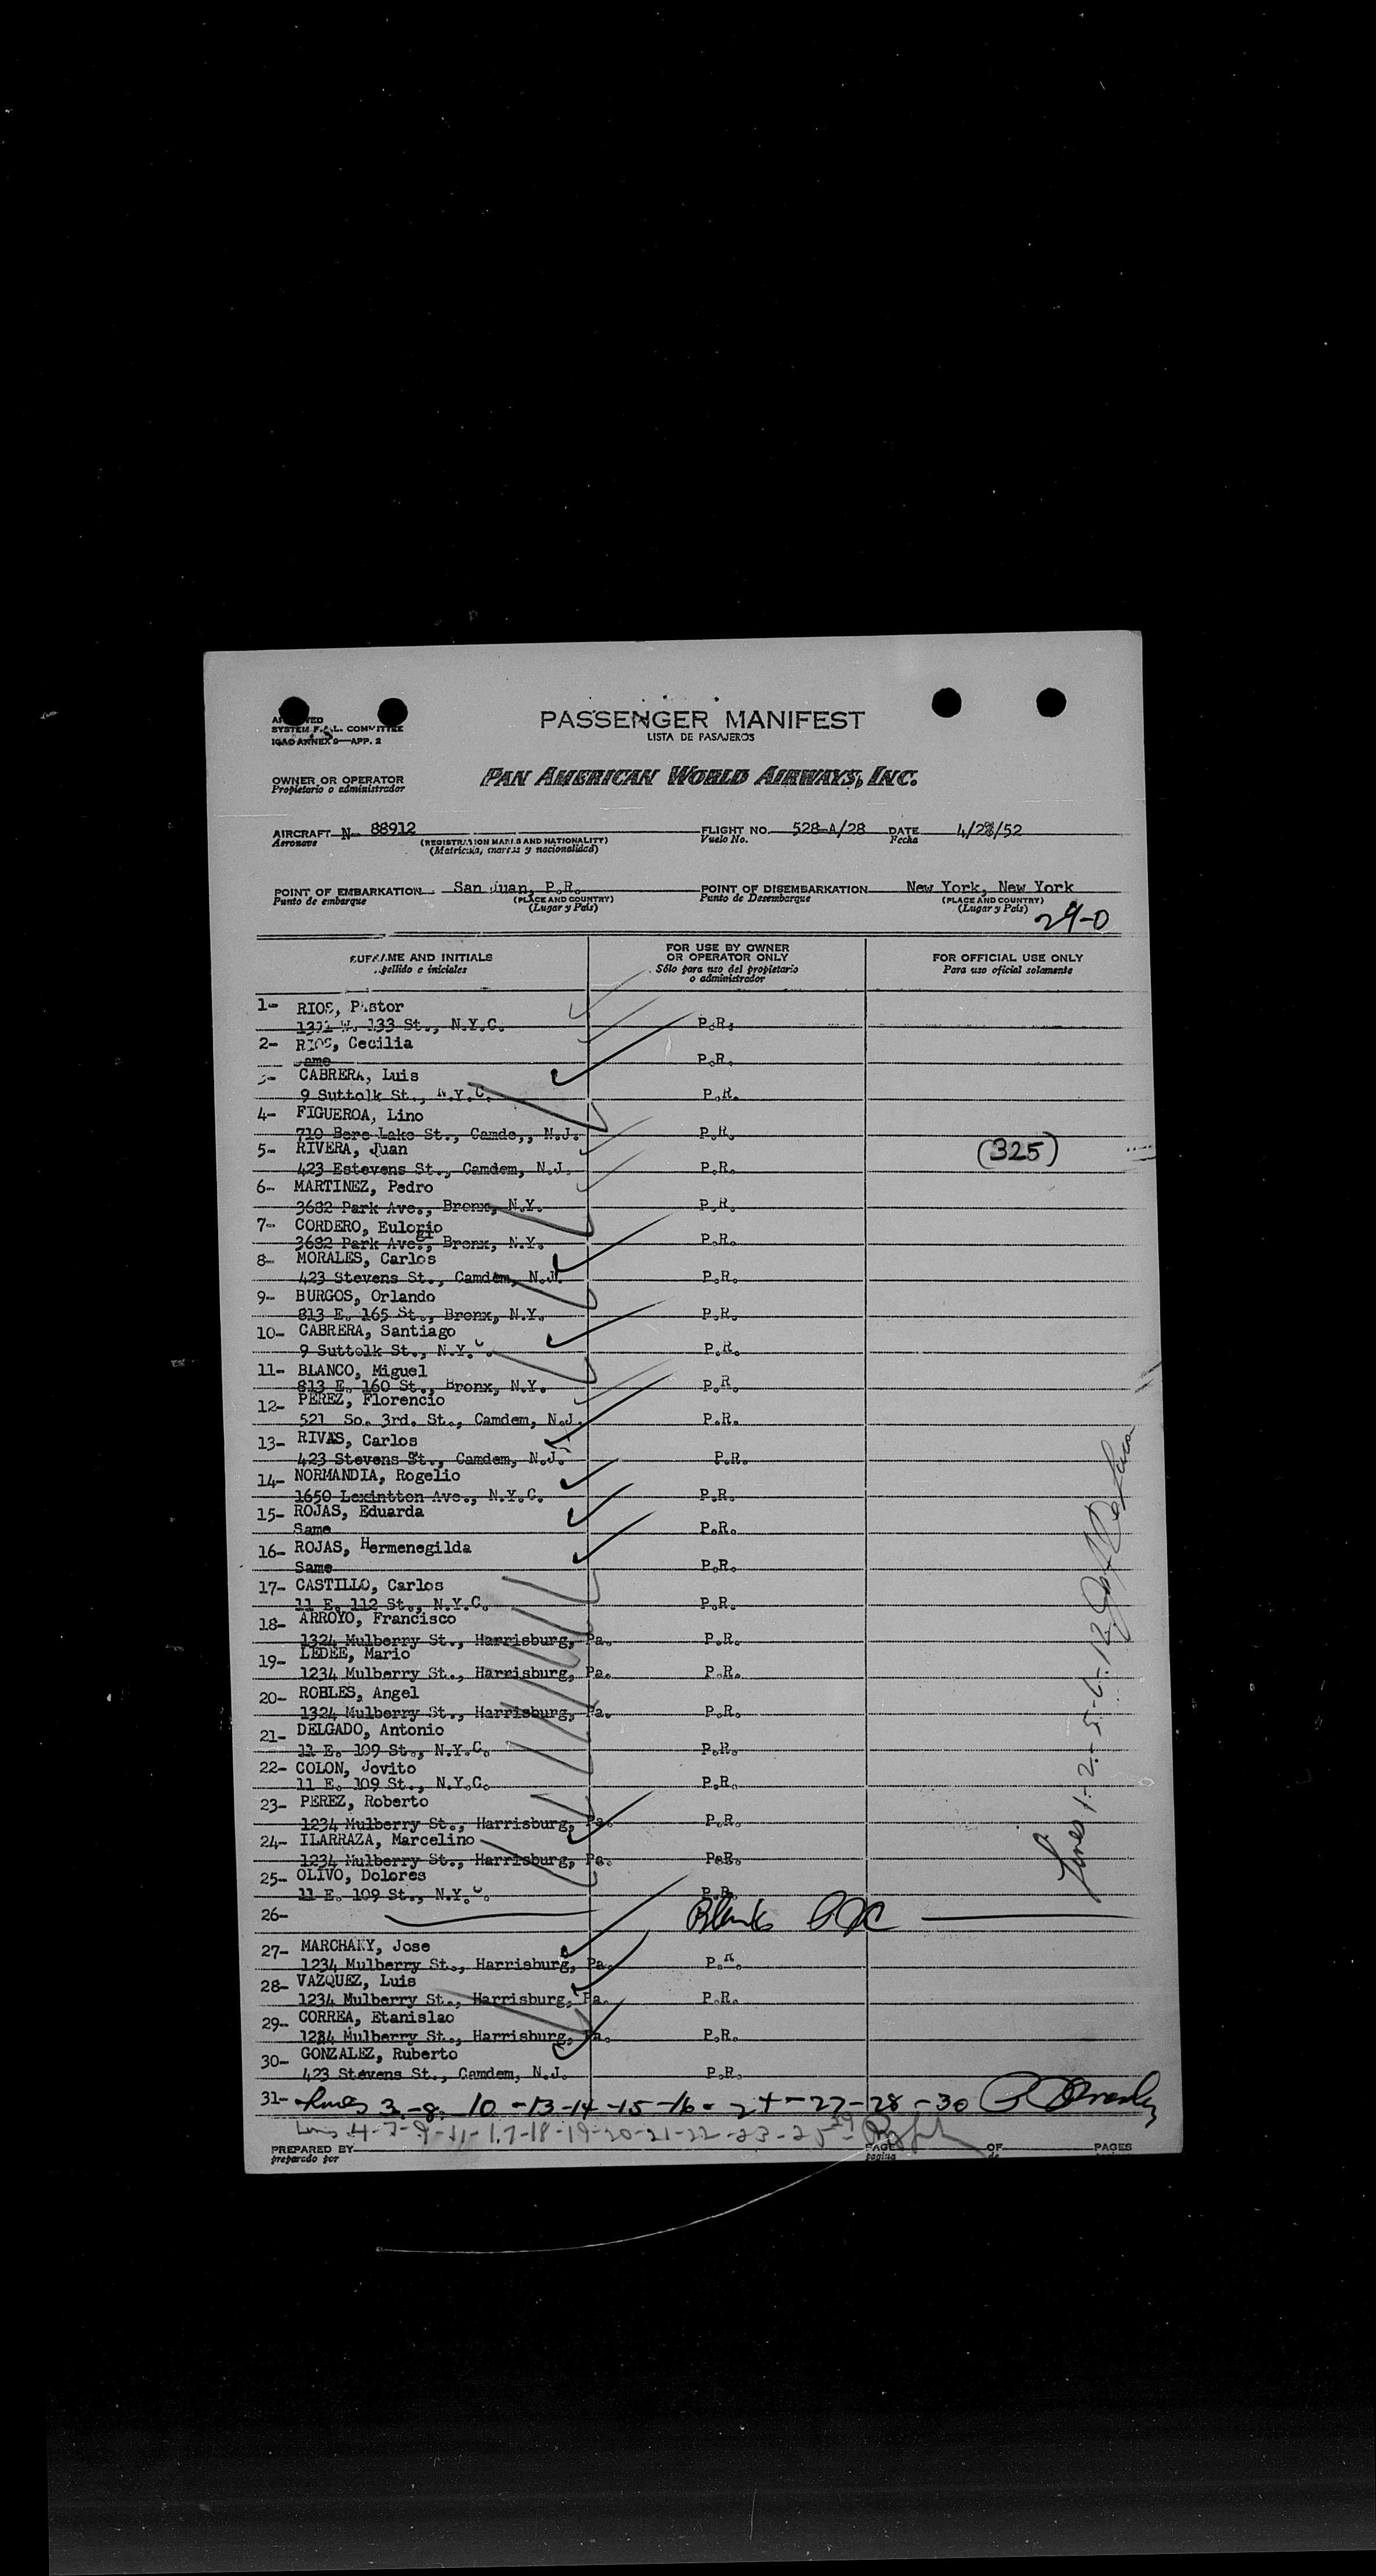 PASSENGER MANIFEST
LISTA DE PASAJEROS
SYSTEM F.A.L. COMMITTEE
ICAO ANNEX 9—APP. 2
OWNER OR OPERATOR
Propietario o administrador
PAN AMERICAN WORLD AIRWAYS, INC.
AIRCRAFT N- 88912 FLIGHT NO. 528-A/28 DATE 4/28/52
Aeronave (REGISTRATION MARKS AND NATIONALITY) Vuelo No. Fecha
(Matricula, marcas y nacionalidad)
POINT OF EMBARKATION San Juan, P.R. POINT OF DISEMBARKATION New York, New York
Punto de embarque (PLACE AND COUNTRY) Punto de Desembarque (PLACE AND COUNTRY)
(Lugar y País) (Lugar y País)
29-0
SURNAME AND INITIALS FOR USE BY OWNER OR OPERATOR ONLY FOR OFFICIAL USE ONLY
Apellido e iniciales Sólo para uso del propietario o administrador Para uso oficial solamente
1- RIOS, Pastor
W. 133 St., N.Y.C. P.R.
2- RIOS, Cecilia
Same P.R.
3- CABRERA, Luis
9 Suttolk St., N.Y.C. P.R.
4- FIGUEROA, Lino
710 Bere Lake St., Camde,, N.J. P.R.
5- RIVERA, Juan (325)
423 Estevens St., Camdem, N.J. P.R.
6- MARTINEZ, Pedro
3682 Park Ave., Bronx, N.Y. P.R.
7- CORDERO, Eulogio
3682 Park Ave., Bronx, N.Y. P.R.
8- MORALES, Carlos
423 Stevens St., Camdem, N.J. P.R.
9- BURGOS, Orlando
813 E. 165 St., Bronx, N.Y. P.R.
10- CABRERA, Santiago
9 Suttolk St., N.Y.C. P.R.
11- BLANCO, Miguel
813 E. 160 St., Bronx, N.Y. P.R.
12- PEREZ, Florencio
521 So. 3rd. St., Camdem, N.J. P.R.
13- RIVAS, Carlos
423 Stevens St., Camdem, N.J. P.R.
14- NORMANDIA, Rogelio
1650 Lexintton Ave., N.Y.C. P.R.
15- ROJAS, Eduarda
Same P.R.
16- ROJAS, Hermenegilda
Same P.R.
17- CASTILLO, Carlos
11 E. 112 St., N.Y.C. P.R.
18- ARROYO, Francisco
1324 Mulberry St., Harrisburg, Pa. P.R.
19- LEDEE, Mario
1234 Mulberry St., Harrisburg, Pa. P.R.
20- ROBLES, Angel
1324 Mulberry St., Harrisburg, Pa. P.R.
21- DELGADO, Antonio
11 E. 109 St., N.Y.C. P.R.
22- COLON, Jovito
11 E. 109 St., N.Y.C. P.R.
23- PEREZ, Roberto
1234 Mulberry St., Harrisburg, Pa. P.R.
24- ILARRAZA, Marcelino
1234 Mulberry St., Harrisburg, Pa. P.R.
25- OLIVO, Dolores
11 E. 109 St., N.Y.C. P.R.
26- Blank
27- MARCHANY, Jose
1234 Mulberry St., Harrisburg, Pa. P.R.
28- VAZQUEZ, Luis
1234 Mulberry St., Harrisburg, Pa. P.R.
29- CORREA, Etanislao
1234 Mulberry St., Harrisburg, Pa. P.R.
30- GONZALEZ, Ruberto
423 Stevens St., Camdem, N.J. P.R.
31- Lines 3-8-10-13-14-15-16-24-27-28-30
Lines 4-7-9-11-17-18-19-20-21-22-23-25-29
PREPARED BY PAGE OF PAGES
preparado por página de
Lines 1-2-5-6-12